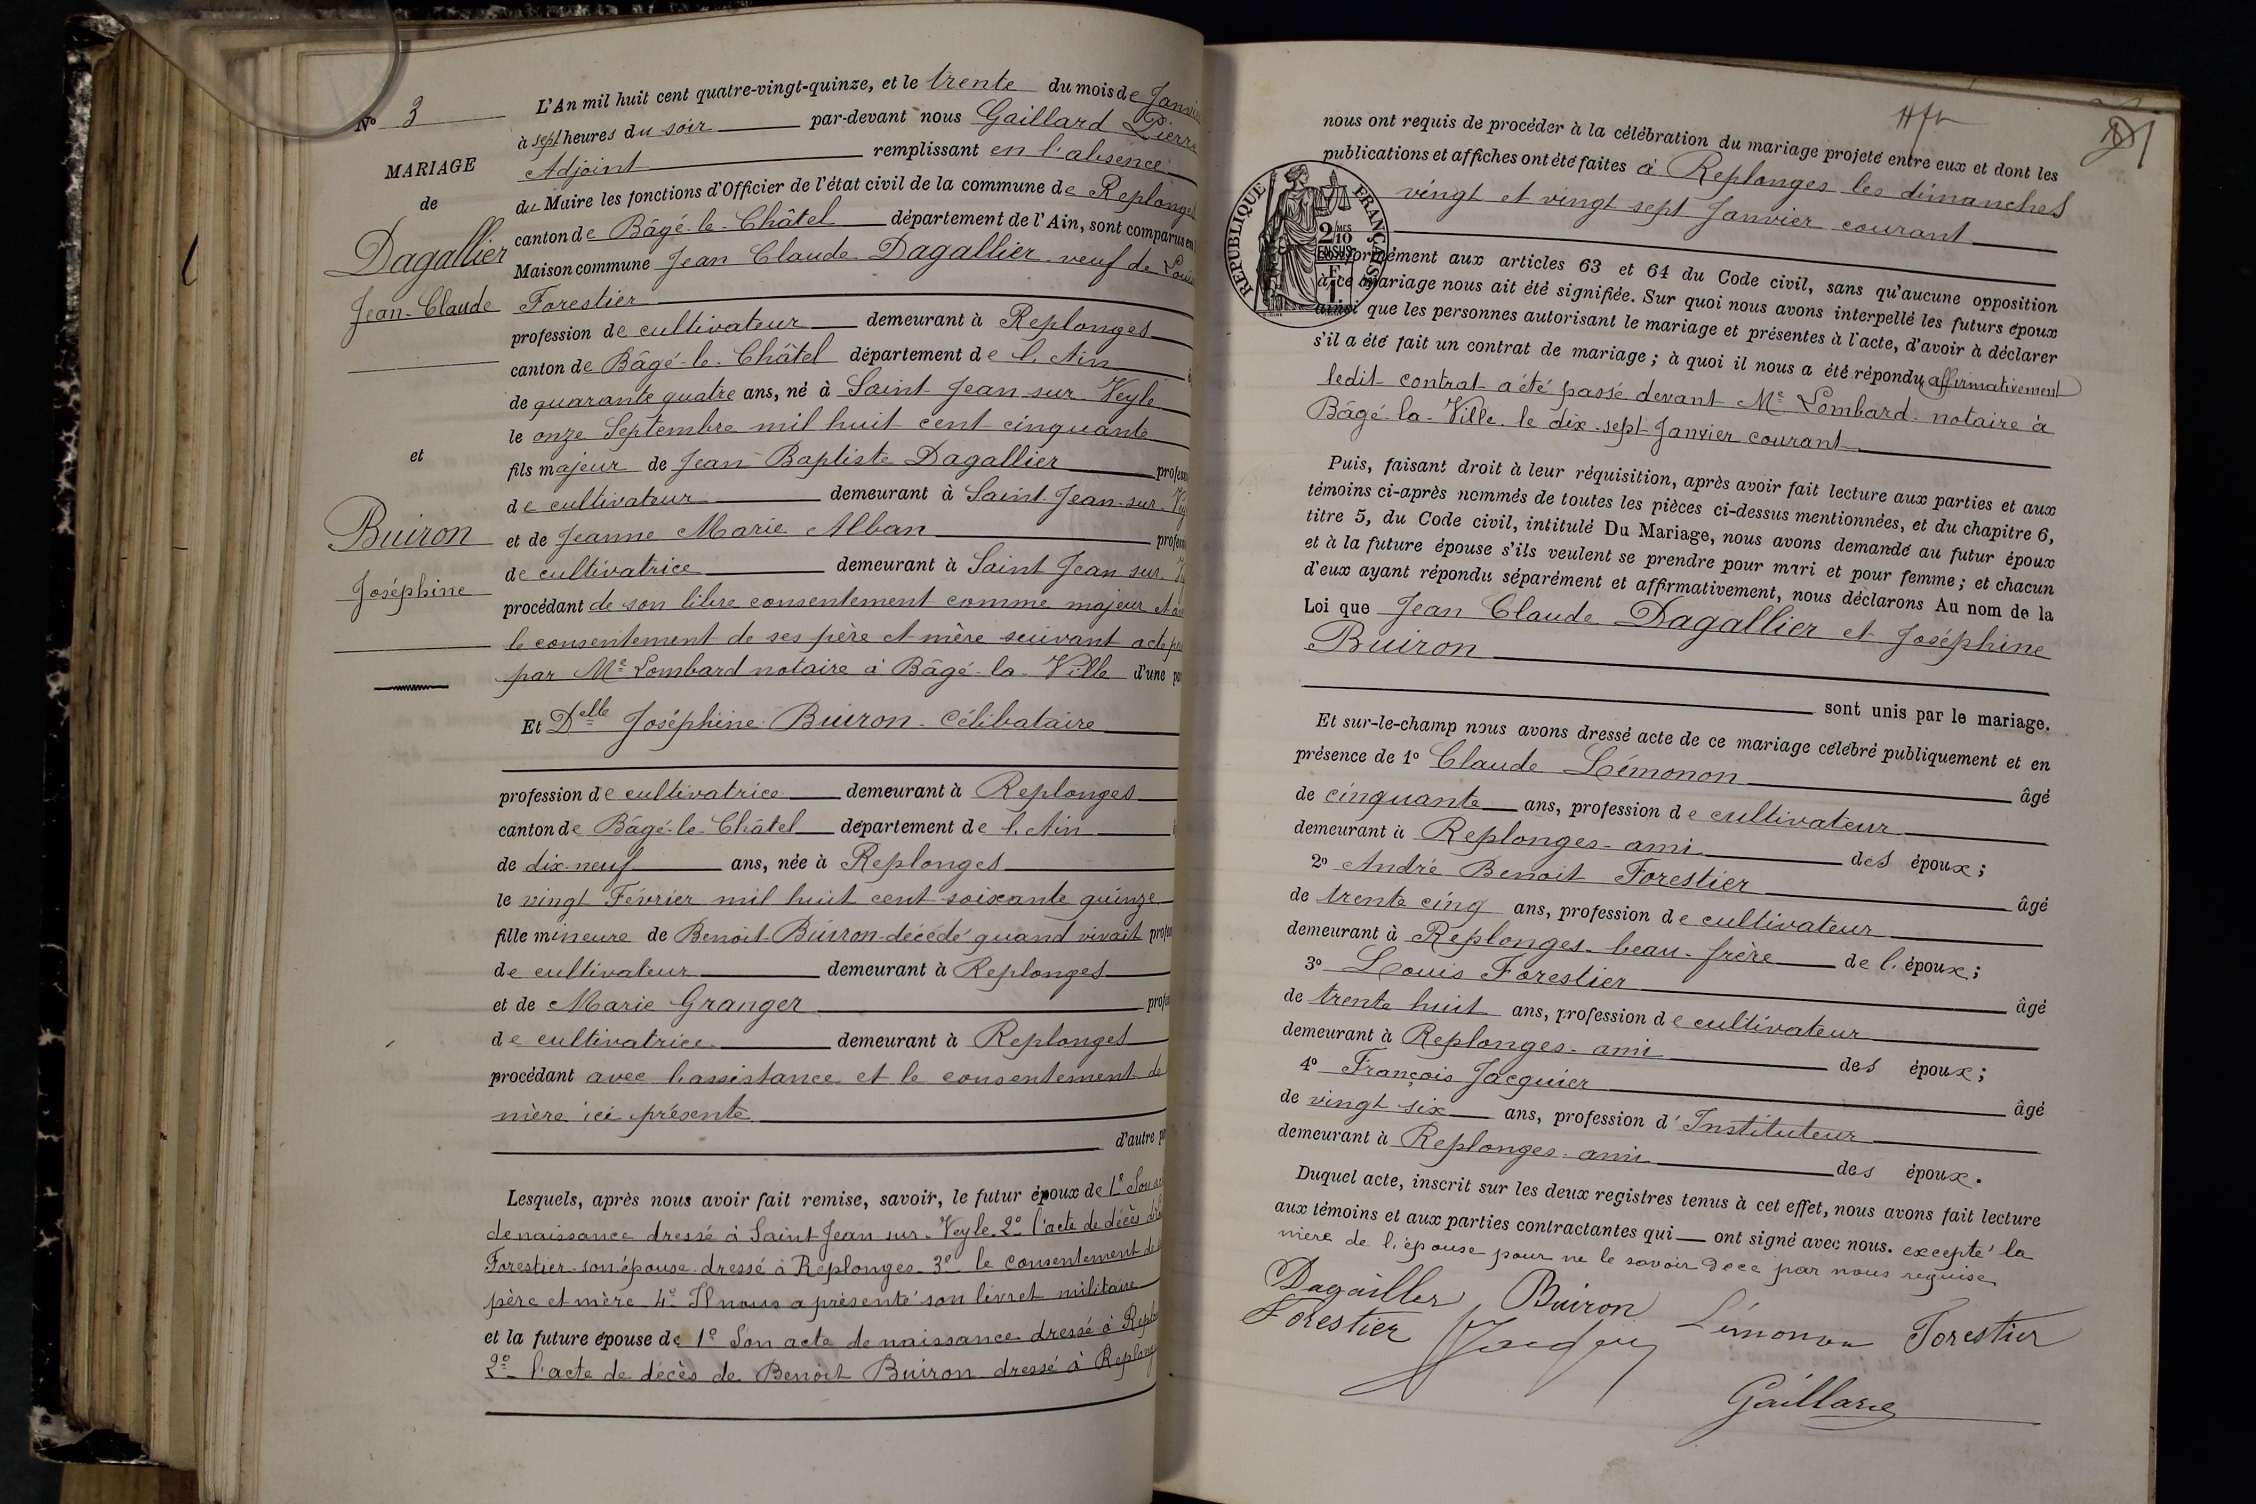 N° 3
MARIAGE
de
Dagallier
Jean-Claude
et
Buiron
Joséphine
L'An mil huit cent quatre-vingt-quinze, et le trente du mois de Janvier
à sept heures du soir par-devant nous Gaillard Pierre
Adjoint remplissant en l'absence
du Maire les fonctions d'Officier de l'état civil de la commune de Replonges
canton de Bâgé-le-Châtel département de l'Ain, sont comparus en
Maison commune Jean Claude Dagallier veuf de Louise
Forestier
profession de cultivateur demeurant à Replonges
canton de Bâgé-le-Châtel département de l'Ain
de quarante quatre ans, né à Saint Jean sur Veyle
le onze Septembre mil huit cent cinquante
fils majeur de Jean Baptiste Dagallier profess
de cultivateur demeurant à Saint-Jean-sur-Vey
et de Jeanne Marie Alban profess
de cultivatrice demeurant à Saint Jean sur
procédant de son libre consentement comme majeur et
le consentement de ses père et mère suivant acte
par Me Lombard notaire à Bâgé-la-Ville d'une
Et Delle Joséphine Buiron célibataire
profession de cultivatrice demeurant à Replonges
canton de Bâgé-le-Châtel département de l'Ain
de dix-neuf ans, née à Replonges
le vingt Février mil huit cent soixante quinze
fille mineure de Benoit Buiron décédé quand vivait profess
de cultivateur demeurant à Replonges
et de Marie Granger profess
de cultivatrice demeurant à Replonges
procédant avec l'assistance et le consentement de
mère ici présente
d'autre
Lesquels, après nous avoir fait remise, savoir, le futur époux de 1° Son
de naissance dressé à Saint Jean sur Veyle 2° l'acte de décès
Forestier son épouse dressé à Replonges 3° le consentement de
père et mère 4° Il nous a présenté son livret militaire
et la future épouse de 1° Son acte de naissance dressé à Replon
2° l'acte de décès de Benoit Buiron dressé à Replong
nous ont requis de procéder à la célébration du mariage projeté entre eux et dont les
publications et affiches ont été faites à Replonges les dimanches
vingt et vingt sept Janvier courant
RÉPUBLIQUE FRANÇAISE
2/10 MES
EN SUS
conformément aux articles 63 et 64 du Code civil, sans qu'aucune opposition
à ce mariage nous ait été signifiée. Sur quoi nous avons interpellé les futurs époux
ainsi que les personnes autorisant le mariage et présentes à l'acte, d'avoir à déclarer
s'il a été fait un contrat de mariage ; à quoi il nous a été répondu affirmativement
ledit contrat a été passé devant Me Lombard notaire à
Bâgé-la-Ville le dix-sept Janvier courant
Puis, faisant droit à leur réquisition, après avoir fait lecture aux parties et aux
témoins ci-après nommés de toutes les pièces ci-dessus mentionnées, et du chapitre 6,
titre 5, du Code civil, intitulé Du Mariage, nous avons demandé au futur époux
et à la future épouse s'ils veulent se prendre pour mari et pour femme ; et chacun
d'eux ayant répondu séparément et affirmativement, nous déclarons Au nom de la
Loi que Jean Claude Dagallier et Joséphine
Buiron
sont unis par le mariage.
Et sur-le-champ nous avons dressé acte de ce mariage célébré publiquement et en
présence de 1° Claude Lémonon âgé
de cinquante ans, profession de cultivateur
demeurant à Replonges ami des époux ;
2° André Benoit Forestier âgé
de trente cinq ans, profession de cultivateur
demeurant à Replonges beau-frère de l'époux ;
3° Louis Forestier âgé
de trente huit ans, profession de cultivateur
demeurant à Replonges ami des époux ;
4° François Jacquier âgé
de vingt six ans, profession d'Instituteur
demeurant à Replonges ami des époux.
Duquel acte, inscrit sur les deux registres tenus à cet effet, nous avons fait lecture
aux témoins et aux parties contractantes qui ont signé avec nous. excepté la
mère de l'épouse pour ne le savoir de ce par nous requise
Dagallier Buiron Lémonon Forestier
Forestier
Gaillard